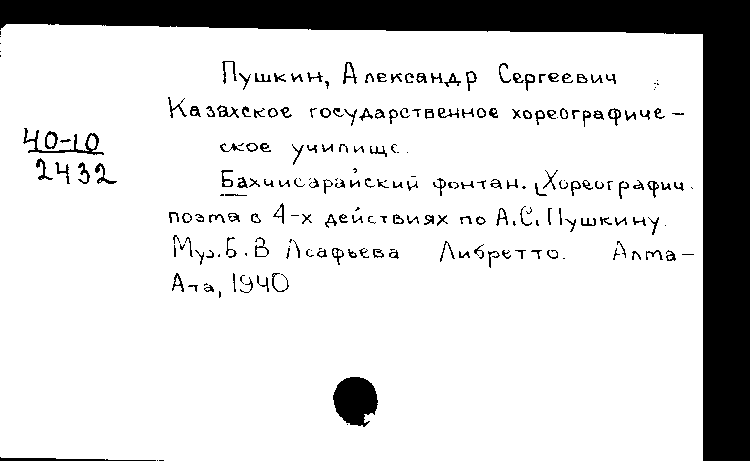 Пушкин, Александр Сергеевич
Казахское государственное хореографиче-
40-10
ское училище.
2432
Бахчисарайский фонтан. [Хореографич.
поэма в 4-х действиях по А.С. Пушкину.
Муз. Б. В Асафьева Либретто. Алма-
Ата, 1940